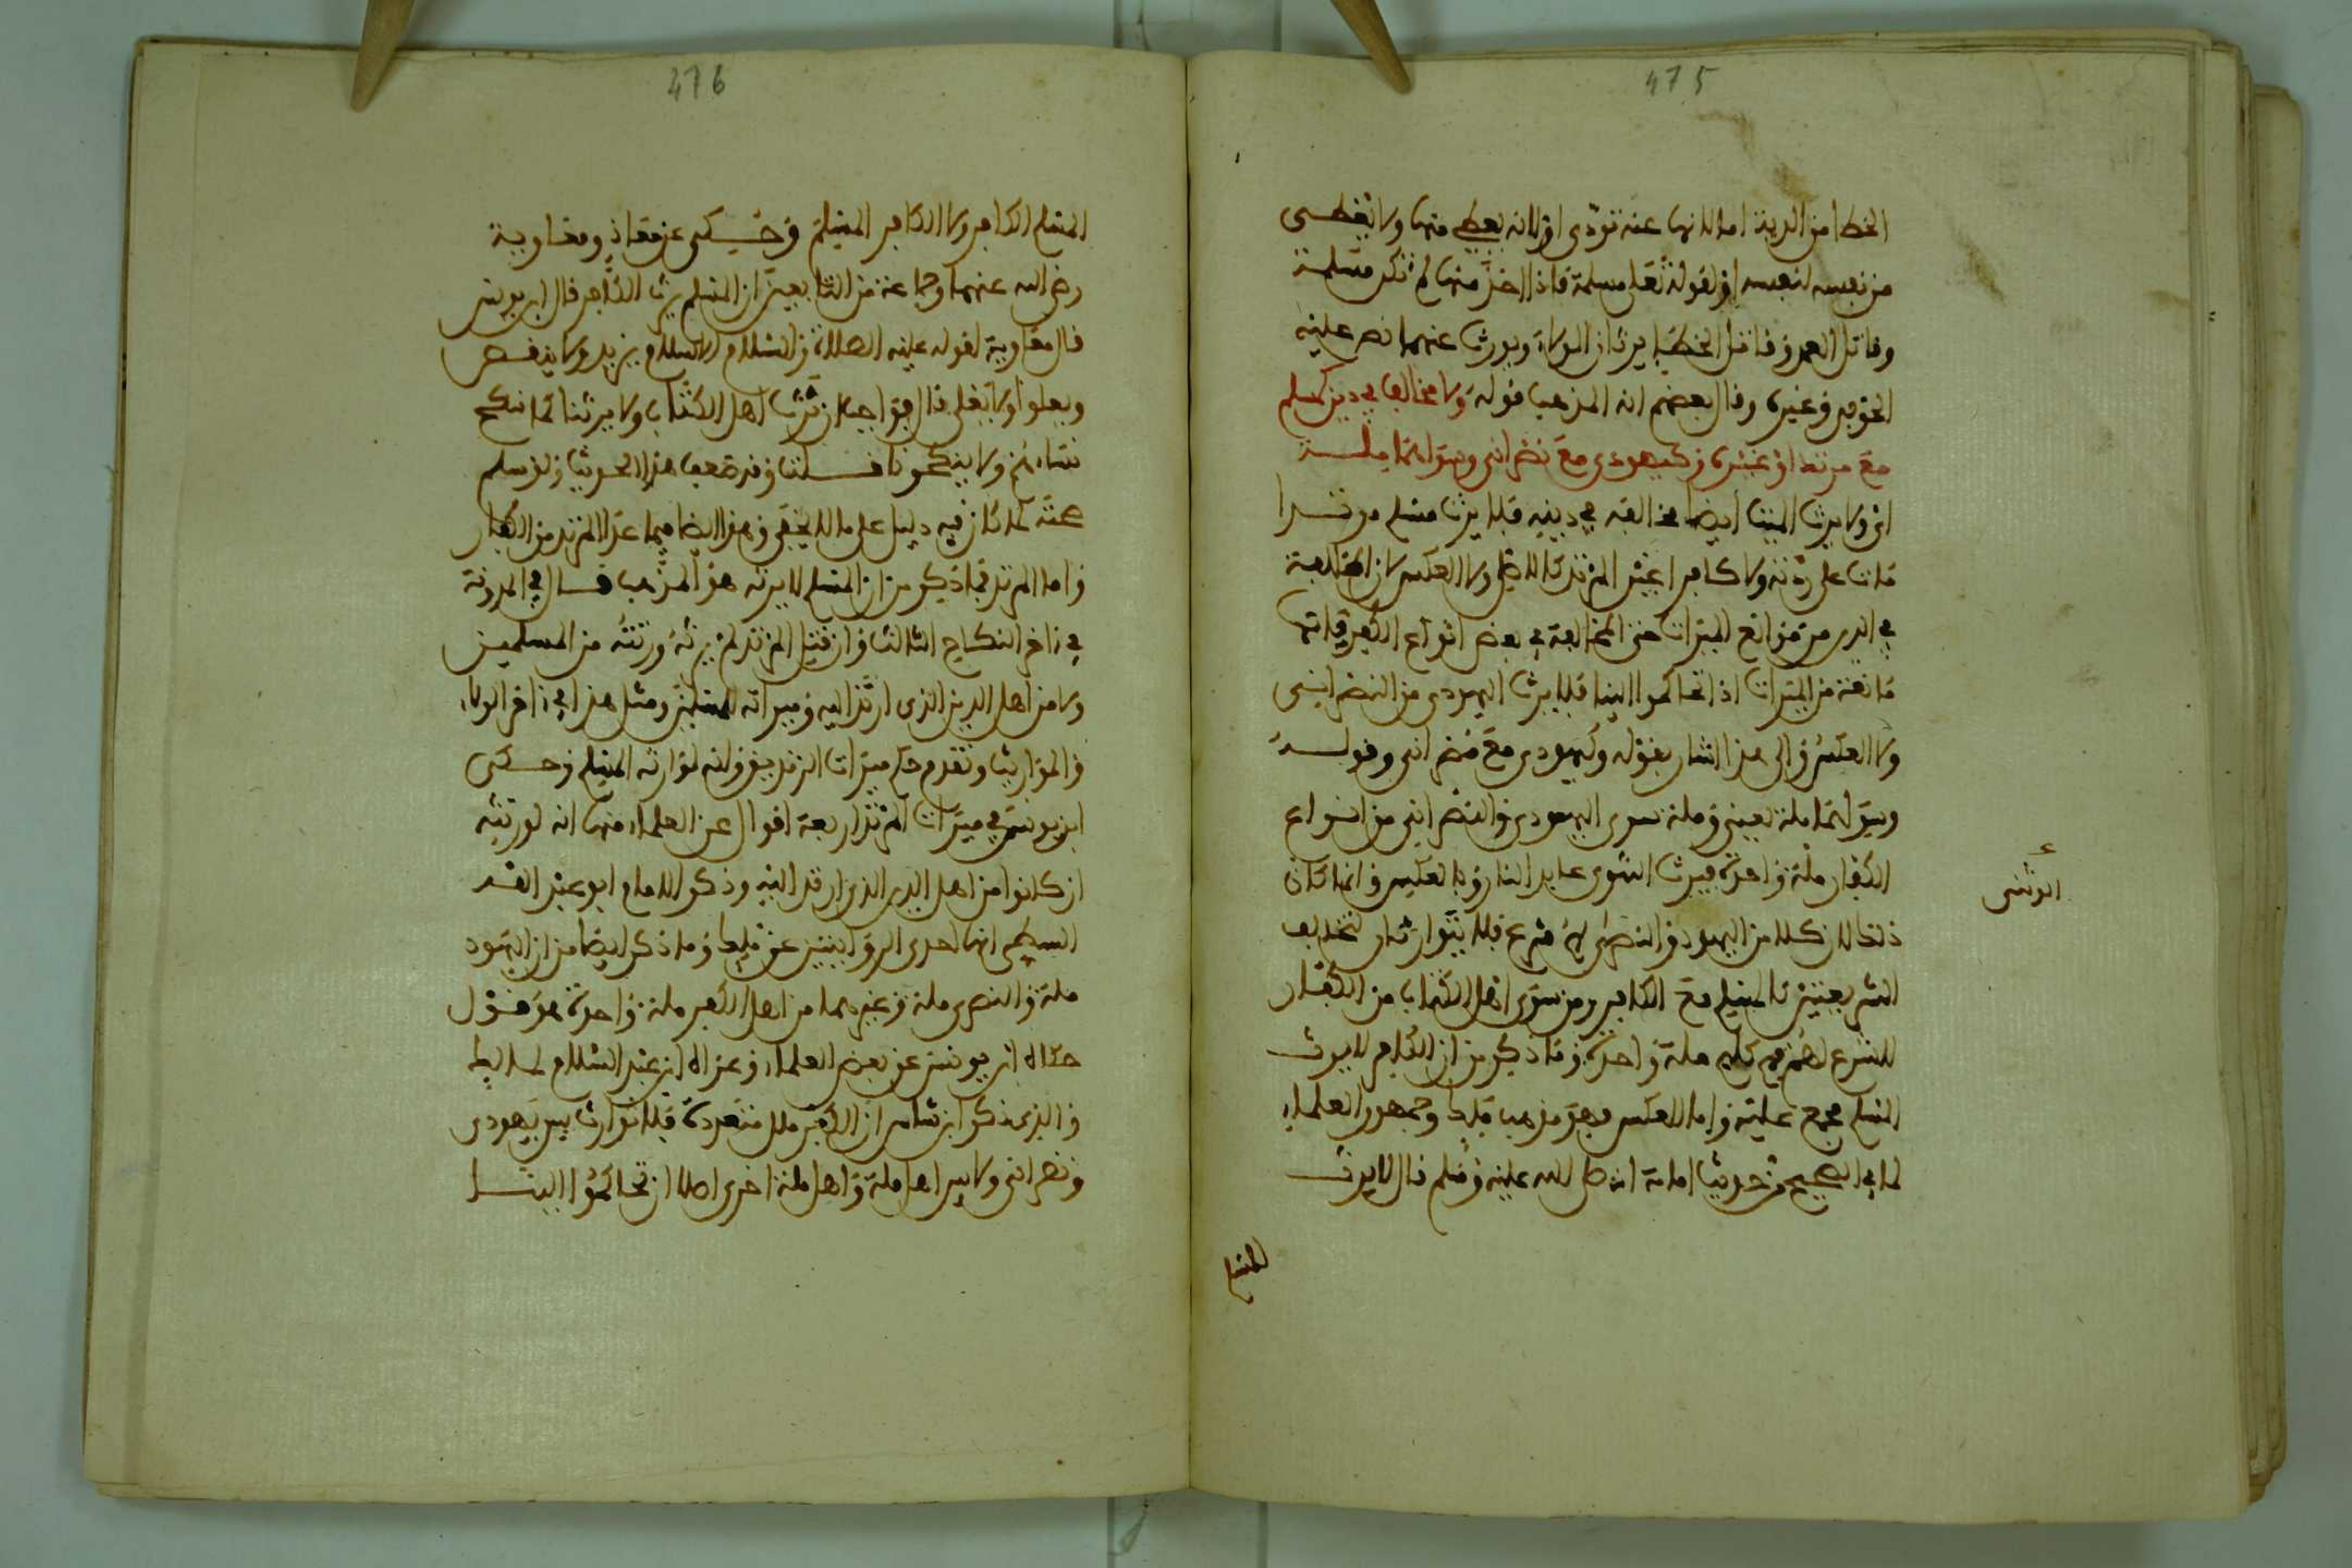 475
الخطإ من الدية اما لانها عنه تؤدى او لانه يعطى منها ولا يعطى
من نفسه لنفسه او لقوله تعلى مسلمة فاذا اخذ منها لم تكن مسلمة
وقاتل العمد وقاتل الخطإ يرثان الولاء ويورث عنهما نص عليه
الحوفي وغيره وقال بعضهم انه المذهب قوله ولا مخالف في دين كمسلم
مع مرتد او غيره وكيهودي مع نصراني وسواهما ملة
اي ولا يرث الميت ايضا مخالفه في دينه فلا يرث مسلم مرتدا
مات على ردته ولا كافرا غير المرتد كالاصلي ولا العكس لان المخالفة
في الدين من موانع الميراث حتى المخالفة في بعض انواع الكفر فانها
مانعة من الميراث اذا تحاكموا الينا فلا يرث اليهودي من النصراني شيئ
ولا العكس والى هذا اشار بقوله وكيهودي مع نصراني وقوله
وسواهما ملة يعني وملة سوى اليهودي والنصراني من انواع
الكفار ملة واحدة فيرث عابد النار وبالعكس وانما كان
الوثني
ذلك لان كلا من اليهود والنصرى لهم شرع فلا يتوارثان لتخالف
الشريعتين كالمسلم مع الكافر ومن سوى اهل الكتاب من الكفار
لا شرع لهم فهم كلهم ملة واحدة وما ذكر من ان الكافر لا يرث
المسلم مجمع عليه واما العكس فهو مذهب ملك وجمهور العلماء
لما في الصحيح من حديث اسامة انه صلى الله عليه وسلم قال لا يرث
المسلم
476
المسلم الكافر ولا الكافر المسلم وحكى عن معاذ ومعاوية
رضي الله عنهما وجماعة من التابعين ان المسلم يرث الكافر قال ابن يونس
قال معاوية لقوله عليه الصلاة والسلام الاسلام يزيد ولا ينقص
ويعلوا ولا يعلى قال فواجب ان نرث اهل الكتاب ولا يرثنا كما ننكح
نساءهم ولا ينكحون نساءنا وقد ضعف هذا الحديث ولو سلم
صحته لما كان فيه دليل على ما لا يخفى وهذا ايضا فيما عدا المرتد من الكفار
واما المرتد فما ذكر من ان المسلم لا يرثه هو المذهب قال في المدونة
في ءاخر النكاح الثالث وان قتل المرتد لم يرثه ورثته من المسلمين
ولا من اهل الدين الذي ارتد اليه وميراثه للمسلمين ومثل هذا في ءاخر الولاء
والمواريث وتقدم حكم ميراث الزنديق وانه لوارثه المسلم وحكى
ابن يونس في ميراث المرتد اربعة اقوال عن العلماء منها انه لورثته
ان كانوا من اهل الدين الذي ارتد اليه وذكر الامام ابو عبد الله
السطي انها احدى الروايتين عن ملك وما ذكر ايضا من ان اليهود
ملة والنصرى ملة وغيرهما من اهل الكفر ملة واحدة هو قول
حكاه ابن يونس عن بعض العلماء وعزاه ابن عبد السلام لمالك
والذي ذكر ابن شاس ان الكفر ملل متعددة فلا توارث بين يهودي
ونصراني ولا بين اهل ملة واهل ملة اخرى اصلا ان تحاكموا الينا